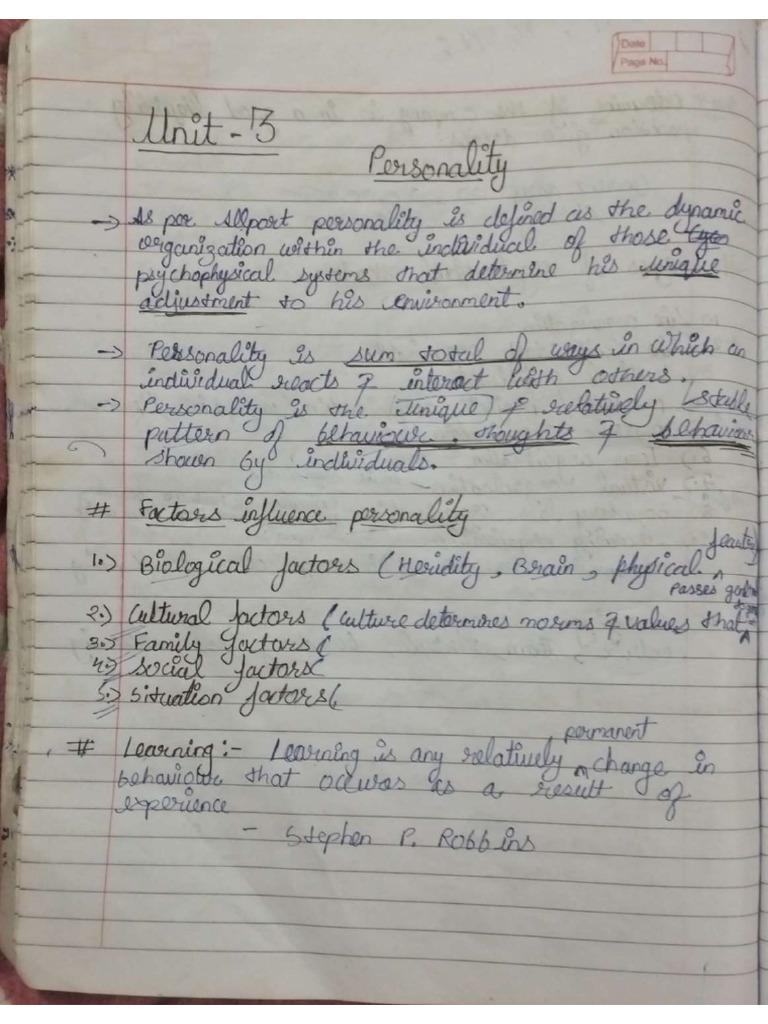 Date
Page No.
Unit - 3
Personality
→ As per Allport personality is defined as the dynamic
organization within the individual of those
psychophysical systems that determine his unique
adjustment to his environment.
→ Personality is sum total of ways in which an
individual reacts & interact with others.
→ Personality is the unique & relatively stable
pattern of behaviour, thoughts & behaviour
shown by individuals.
# Factors influence personality
1.) Biological factors (Heridity, Brain, physical
2.) Cultural factors (culture determines norms & values that
passes
3.) Family factors (
4.) Social factors (
5.) Situation factors (
# Learning :- Learning is any relatively permanent change in
behaviour that occures as a result of
experience
- Stephen P. Robbins